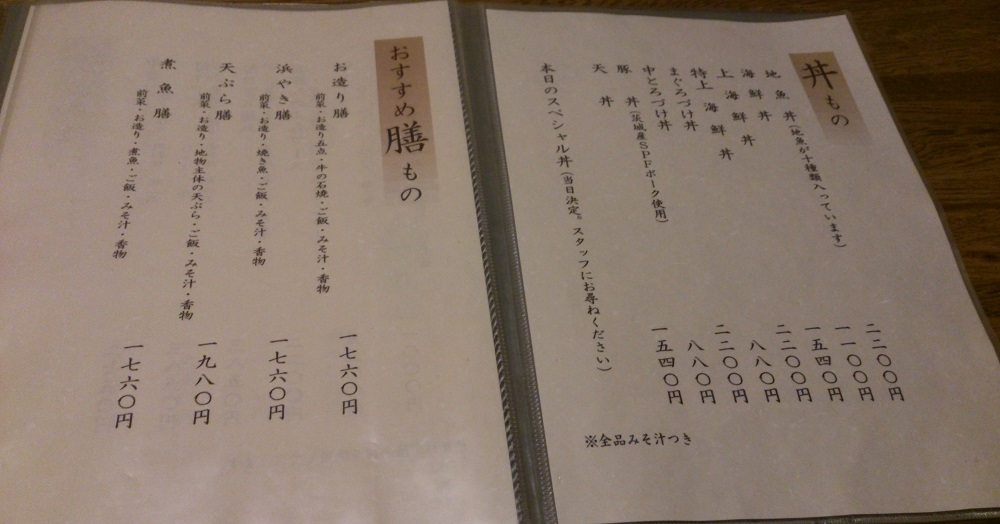 丼もの
地魚丼(地魚が十種類入っています) 二二〇〇円
海鮮丼 一一〇〇円
上海鮮丼 一五四〇円
特上海鮮丼 二二〇〇円
まぐろづけ丼 八八〇円
中とろづけ丼 二二〇〇円
豚丼(茨城産SPFポーク使用) 八八〇円
天丼 一五四〇円
本日のスペシャル丼(当日決定。スタッフにお尋ねください)
※全品みそ汁つき
おすすめ膳もの
お造り膳
前菜・お造り五点・牛の石焼・ご飯・みそ汁・香物 一七六〇円
浜やき膳
前菜・お造り・焼き魚・ご飯・みそ汁・香物 一七六〇円
天ぷら膳
前菜・お造り・地物主体の天ぷら・ご飯・みそ汁・香物 一九八〇円
煮魚膳
前菜・お造り・煮魚・ご飯・みそ汁・香物 一七六〇円